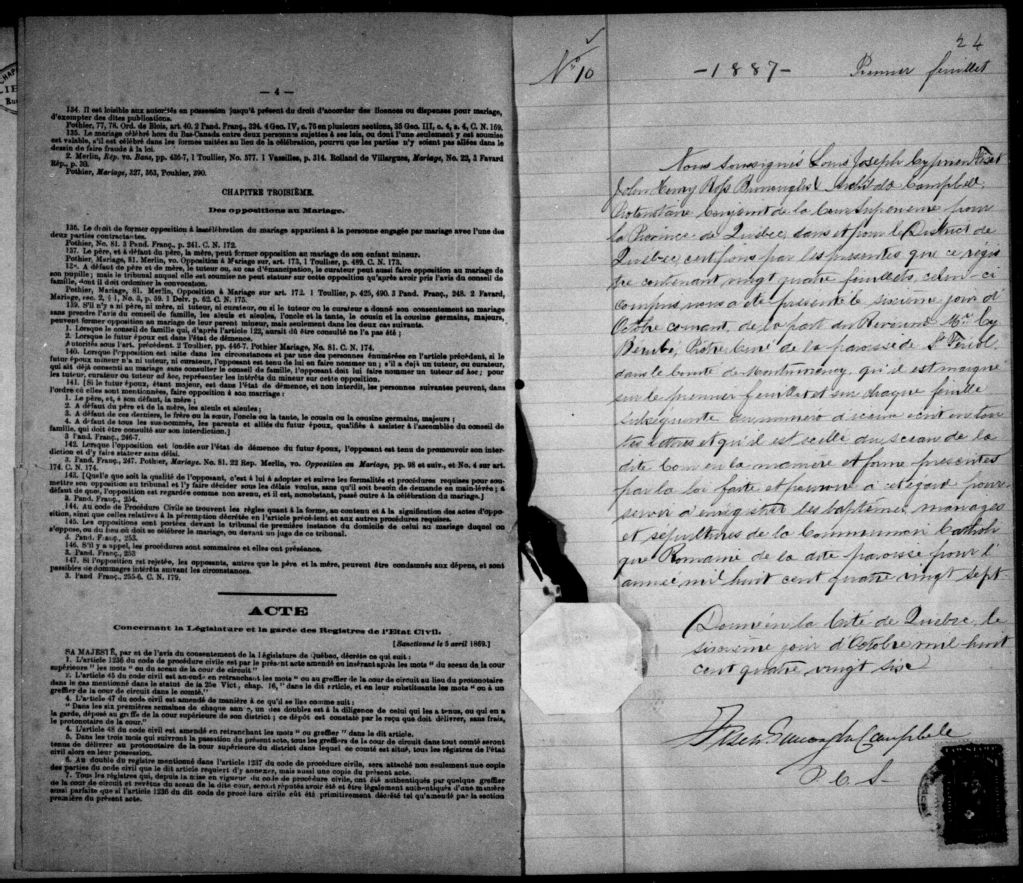 — 4 —
134. Il est loisible aux autorités en possession jusqu'à présent du droit d'accorder des licences ou dispenses pour mariage,
d'exempter des dites publications.
Pothier, 77, 78. Ord. de Blois, art 40. 2 Pand. Franç., 224. 4 Geo. IV, c. 76 en plusieurs sections, 35 Geo. III, c. 4, s. 4, C. N. 169.
135. Le mariage célébré hors du Bas-Canada entre deux personnes sujettes à ses lois, ou dont l'une seulement y est soumise
est valable, s'il est célébré dans les formes usitées au lieu de la célébration, pourvu que les parties n'y soient pas allées dans le
dessin de faire fraude à la loi.
2. Merlin, Rép. vo. Bans, pp. 436-7, 1 Toullier, No. 577. 1 Vassilles, p. 314. Rolland de Villargues, Mariage, No. 22, 3 Favard
Rép., p. 30.
Pothier, Mariage, 327, 363, Pouhier, 390.
CHAPITRE TROISIÈME.
Des oppositions au Mariage.
136. Le droit de former opposition à la célébration du mariage appartient à la personne engagée par mariage avec l'une des
deux parties contractantes.
Pothier, No. 81. 3 Pand. Franç., p. 241. C. N. 172.
137. Le père, et à défaut du père, la mère, peut former opposition au mariage de son enfant mineur.
Pothier, Mariage, 81. Merlin, vo. Opposition à Mariage sur art. 173, 1 Toullier, p. 489. C. N. 173.
A défaut de père et de mère, le tuteur ou, au cas d'émancipation, le curateur peut aussi faire opposition au mariage de
son pupille; mais le tribunal auquel elle est soumise ne peut statuer sur cette opposition qu'après avoir pris l'avis du conseil de
famille, dont il doit ordonner la convocation.
Pothier, Mariage, 81. Merlin, Opposition à Mariage sur art. 172. 1 Toullier, p. 425, 490. 3 Pand. Franç., 248. 2 Favard,
Mariage, sec. 2, § 1, No. 3, p. 59. 1 Delv. p. 62. C. N. 175.
139. S'il n'y a ni père, ni mère, ni tuteur, ni curateur, ou si le tuteur ou le curateur a donné son consentement au mariage
sans prendre l'avis du conseil de famille, les aïeuls et aïeules, l'oncle et la tante, le cousin et la cousine germains, majeurs,
peuvent former opposition au mariage de leur parent mineur, mais seulement dans les deux cas suivants.
1. Lorsque le conseil de famille qui, d'après l'article 122, aurait dû être consulté ne l'a pas été;
2. Lorsque le futur époux est dans l'état de démence.
Autorités sous l'art. précédent. 2 Toullier, pp. 446-7. Pothier Mariage, No. 81. C. N. 174.
140. Lorsque l'opposition est faite dans les circonstances et par une des personnes énumérées en l'article précédent, si le
futur époux mineur n'a ni tuteur, ni curateur, l'opposant est tenu de lui en faire nommer un; s'il a déjà un tuteur, ou curateur,
qui ait déjà consenti au mariage sans consulter le conseil de famille, l'opposant doit lui faire nommer un tuteur ad hoc; pour
les tuteur, curateur ou tuteur ad hoc, représenter les intérêts du mineur sur cette opposition.
141. [Si le futur époux, étant majeur, est dans l'état de démence, et non interdit, les personnes suivantes peuvent, dans
l'ordre où elles sont mentionnées, faire opposition à son mariage:
1. Le père, et, à son défaut, la mère;
2. A défaut du père et de la mère, les aïeuls et aïeules;
3. A défaut de ces derniers, le frère ou la sœur, l'oncle ou la tante, le cousin ou la cousine germains, majeurs;
4. A défaut de tous les sus-nommés, les parents et alliés du futur époux, qualifiés à assister à l'assemblée du conseil de
famille, qui doit être consulté sur son interdiction.]
3 Pand. Franç., 246-7.
142. Lorsque l'opposition est fondée sur l'état de démence du futur époux, l'opposant est tenu de promouvoir son inter-
diction et d'y faire statuer sans délai.
3. Pand. Franç., 247. Pothier, Mariage, No. 81. 22 Rep. Merlin, vo. Opposition au Mariage, pp. 98 et suiv., et No. 4 sur art.
174. C. N. 174.
143. [Quelle que soit la qualité de l'opposant, c'est à lui à adopter et suivre les formalités et procédures requises pour sou-
mettre son opposition au tribunal et l'y faire décider sous les délais voulus, sans qu'il soit besoin de demande en main-levée; à
défaut de quoi, l'opposition est regardée comme non avenu, et il est, nonobstant, passé outre à la célébration du mariage.]
3. Pand. Franç., 254.
144. Au code de Procédure Civile se trouvent les règles quant à la forme, au contenu et à la signification des actes d'oppo-
sition, ainsi que celles relatives à la péremption décrétée en l'article précédent et aux autres procédures requises.
145. Les oppositions sont portées devant le tribunal de première instance du domicile de celui au mariage duquel on
s'oppose, ou du lieu où doit se célébrer le mariage, ou devant un juge de ce tribunal.
3. Pand. Franç., 253.
146. S'il y a appel, les procédures sont sommaires et elles ont préséance.
3. Pand. Franç., 253
147. Si l'opposition est rejetée, les opposants, autres que le père et la mère, peuvent être condamnés aux dépens, et sont
passibles de dommages intérêts suivant les circonstances.
3. Pand Franç., 255-6. C. N. 179.
ACTE
Concernant la Législature et la garde des Registres de l'Etat Civil.
[Sanctionné le 5 avril 1869.]
SA MAJESTÉ, par et de l'avis du consentement de la Législature de Québec, décrète ce qui suit:
1. L'article 1236 du code de procédure civile est par le présent acte amendé en insérant après les mots "du sceau de la cour
supérieure" les mots "ou du sceau de la cour de circuit"
2. L'article 45 du code civil est amendé en retranchant les mots "ou au greffier de la cour de circuit au lieu du protonotaire
dans le cas mentionné dans le statut de la 25e Vict., chap. 16," dans le dit article, et en leur substituant les mots "ou à un
greffier de la cour de circuit dans le comté."
4. L'article 47 du code civil est amendé de manière à ce qu'il se lise comme suit:
"Dans les six premières semaines de chaque année, un des doubles est à la diligence de celui qui les a tenus, ou qui en a
la garde, déposé au greffe de la cour supérieure de son district; ce dépôt est constaté par le reçu que doit délivrer, sans frais,
le protonotaire de la cour."
4. L'article 48 du code civil est amendé en retranchant les mots "ou greffier" dans le dit article.
5. Dans les trois mois qui suivront la passation du présent acte, tous les greffiers de la cour de circuit dans tout comté seront
tenus de délivrer au protonotaire de la cour supérieure du district dans lequel ce comté est situé, tous les registres de l'état
civil alors en leur possession.
6. Au double du registre mentionné dans l'article 1237 du code de procédure civile, sera attaché non seulement une copie
des parties du code civil que le dit article requiert d'y annexer, mais aussi une copie du présent acte.
7. Tous les registres qui, depuis la mise en vigueur du code de procédure civile, ont été authentiqués par quelque greffier
de la cour de circuit et revêtus du sceau de la dite cour, seront réputés avoir été et être légalement authentiqués d'une manière
aussi parfaite que si l'article 1236 du dit code de procédure civile eût été primitivement décrété tel qu'amendé par la section
première du présent acte.
24
No 10 -1887- Premier feuillet
Nous soussignés Louis Joseph Cyprien Fiset
John Henry Ross Burroughs & Campbell,
Protonotaire Conjoint de la Cour Supérieure pour
la Province de Québec, dans et pour le District de
Québec, certifions par les présentes que ce régis
tre contenant vingt quatre feuillets, celui-ci
compris, nous a été présenté le sixième jour d'
Octobre courant, de la part du Révérend Mr. Cy
Bérubé, Prêtre Curé de la paroisse de St Féréol,
dans le Comté de Montmorency, qu'il est marqué
sur le premier feuillet et sur chaque feuille
subséquente du numéro d'icelui écrit en tou
tes lettres et qu'il est scellé du sceau de la
dite Cour en la manière et forme prescrites
par la loi faite et pourvue à cet égard pour
servir à enregistrer les baptêmes, mariages
et sépultures de la Communion Catholi
que Romaine de la dite paroisse pour l'
année mil huit cent quatre vingt sept.
Donné en la Cité de Québec, le
sixième jour d'Octobre mil huit
cent quatre vingt six
Fiset Burroughs Campbell
P. C. S.